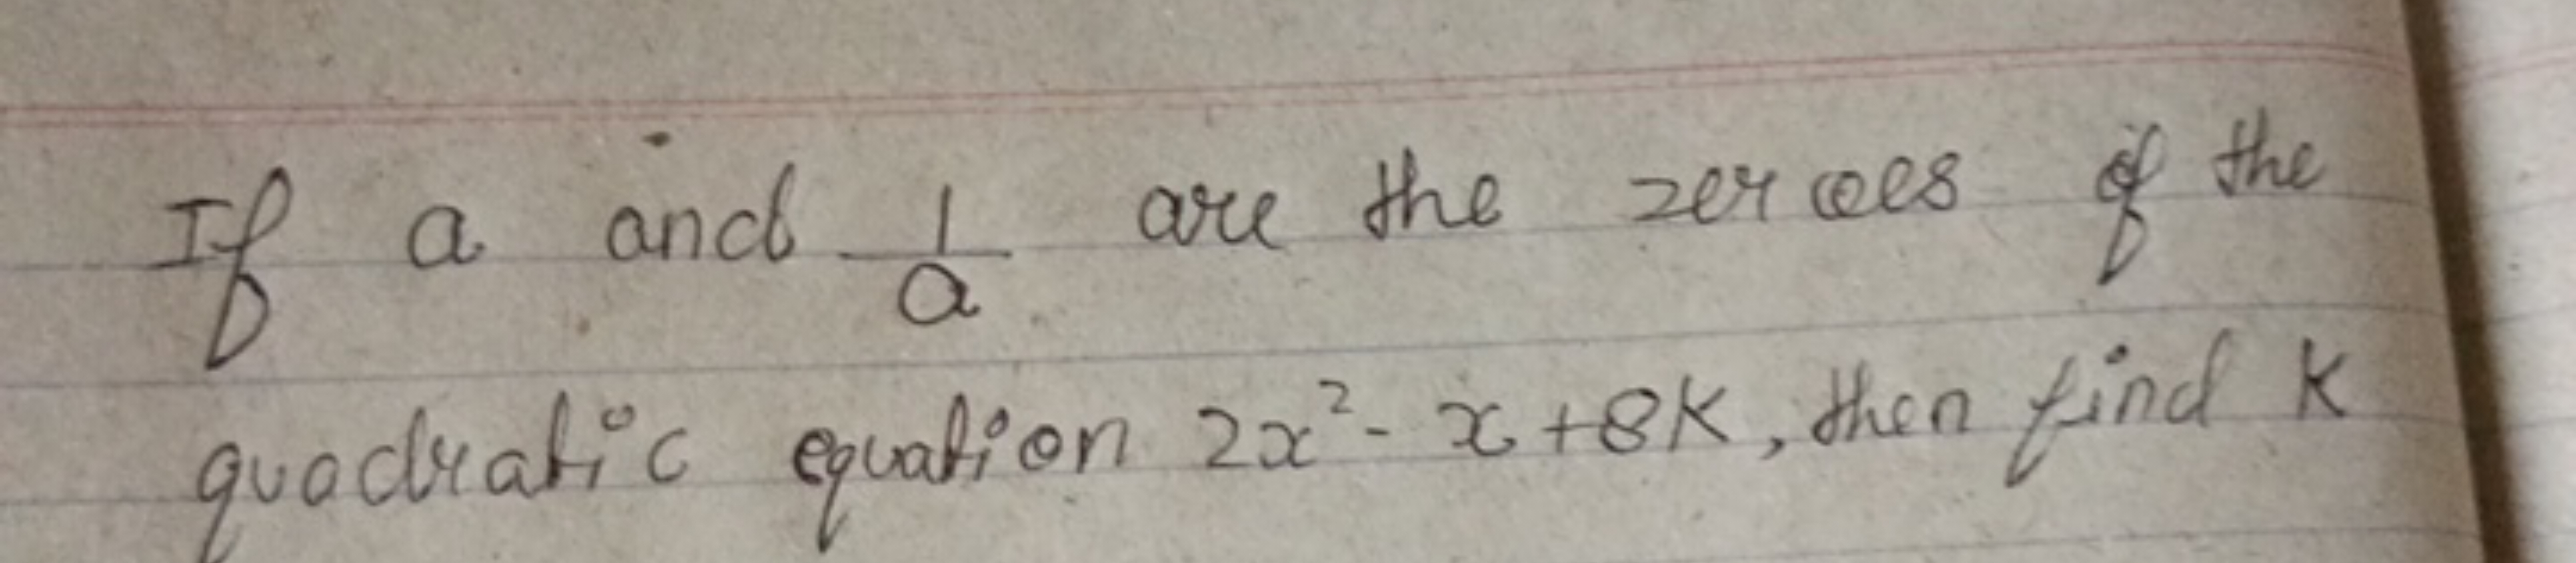 If a and 1/a are the zeroes of the
quadratic equation 2x² - x + 8K, then find K